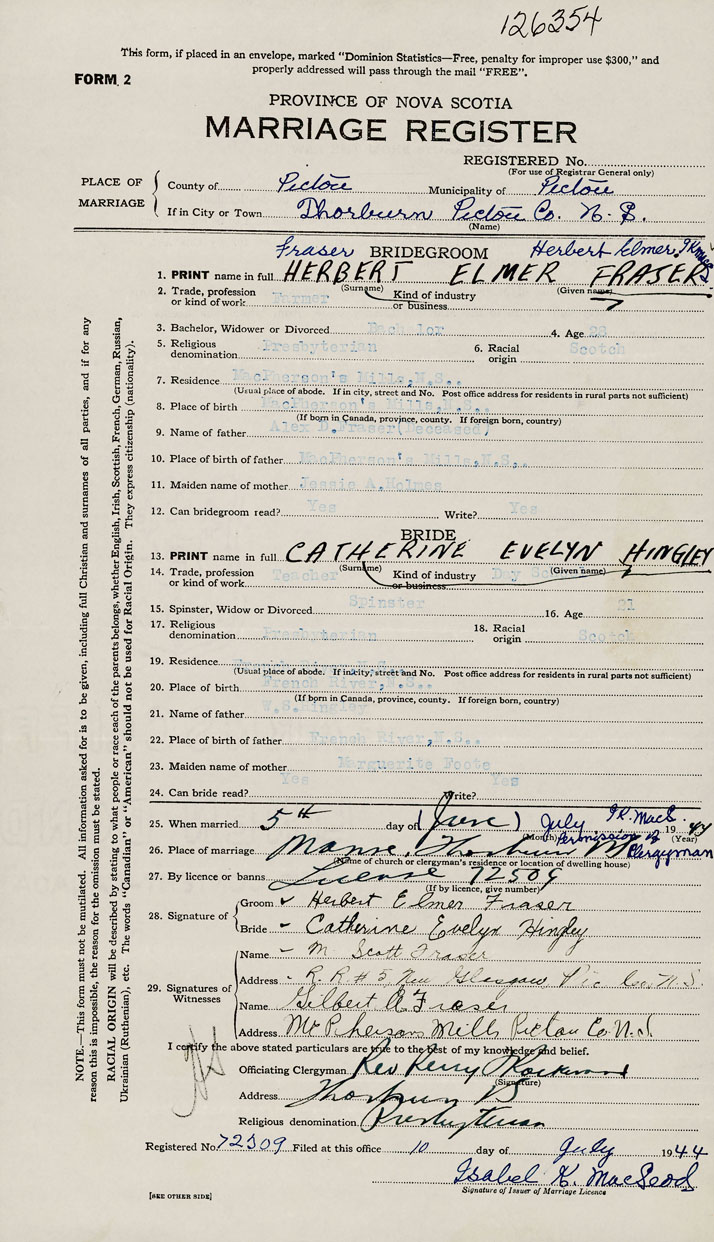 126354
This form, if placed in an envelope, marked "Dominion Statistics—Free, penalty for improper use $300," and
properly addressed will pass through the mail "FREE".
FORM 2
PROVINCE OF NOVA SCOTIA
MARRIAGE REGISTER
REGISTERED No.
(For use of Registrar General only)
PLACE OF MARRIAGE
County of Pictou Municipality of Pictou
If in City or Town Thorburn Pictou Co. N.S.
(Name)
Fraser BRIDEGROOM Herbert Elmer
1. PRINT name in full HERBERT ELMER FRASER
(Surname) (Given name)
2. Trade, profession or kind of work Farmer Kind of industry or business
3. Bachelor, Widower or Divorced Bachelor 4. Age 28
5. Religious denomination Presbyterian 6. Racial origin Scotch
7. Residence MacPherson's Mills, N.S..
(Usual place of abode. If in city, street and No. Post office address for residents in rural parts not sufficient)
8. Place of birth MacPherson's Mills, N.S..
(If born in Canada, province, county. If foreign born, country)
9. Name of father Alex D. Fraser (Deceased)
10. Place of birth of father MacPherson's Mills, N.S..
11. Maiden name of mother Jessie A. Holmes
12. Can bridegroom read? Yes Write? Yes
BRIDE
13. PRINT name in full CATHERINE EVELYN HINGLEY
(Surname) (Given name)
14. Trade, profession or kind of work Teacher Kind of industry or business Day
15. Spinster, Widow or Divorced Spinster 16. Age 21
17. Religious denomination Presbyterian 18. Racial origin Scotch
19. Residence
(Usual place of abode. If in city, street and No. Post office address for residents in rural parts not sufficient)
20. Place of birth French River, N.S..
(If born in Canada, province, county. If foreign born, country)
21. Name of father W.S. Hingley
22. Place of birth of father French River, N.S..
23. Maiden name of mother Marguerite Foote
24. Can bride read? Yes Write? Yes
25. When married 5th day of (June) July I.K. MacL. 1944
(Month) Permission of Clergyman (Year)
26. Place of marriage Manse, Thorburn NS
(Name of church or clergyman's residence or location of dwelling house)
27. By licence or banns License 72509
(If by licence, give number)
28. Signature of Groom Herbert Elmer Fraser
Bride Catherine Evelyn Hingley
29. Signatures of Witnesses Name M. Scott Fraser
Address R.R #5, New Glasgow, Pic Co. N.S.
Name Gilbert A Fraser
Address McPhersons Mills Pictou Co. N.S.
I certify the above stated particulars are true to the best of my knowledge and belief.
Officiating Clergyman Rev Kerry
(Signature)
Address Thorburn NS
Religious denomination Presbyterian
Registered No. 72509 Filed at this office 10 day of July 1944
Isabel K. MacLeod
Signature of Issuer of Marriage Licence
[SEE OTHER SIDE]
NOTE.—This form must not be mutilated. All information asked for is to be given, including full Christian and surnames of all parties, and if for any
reason this is impossible, the reason for the omission must be stated.
RACIAL ORIGIN will be described by stating to what people or race each of the parents belongs, whether English, Irish, Scottish, French, German, Russian,
Ukrainian (Ruthenian), etc. The words "Canadian" or "American" should not be used for Racial Origin. They express citizenship (nationality).